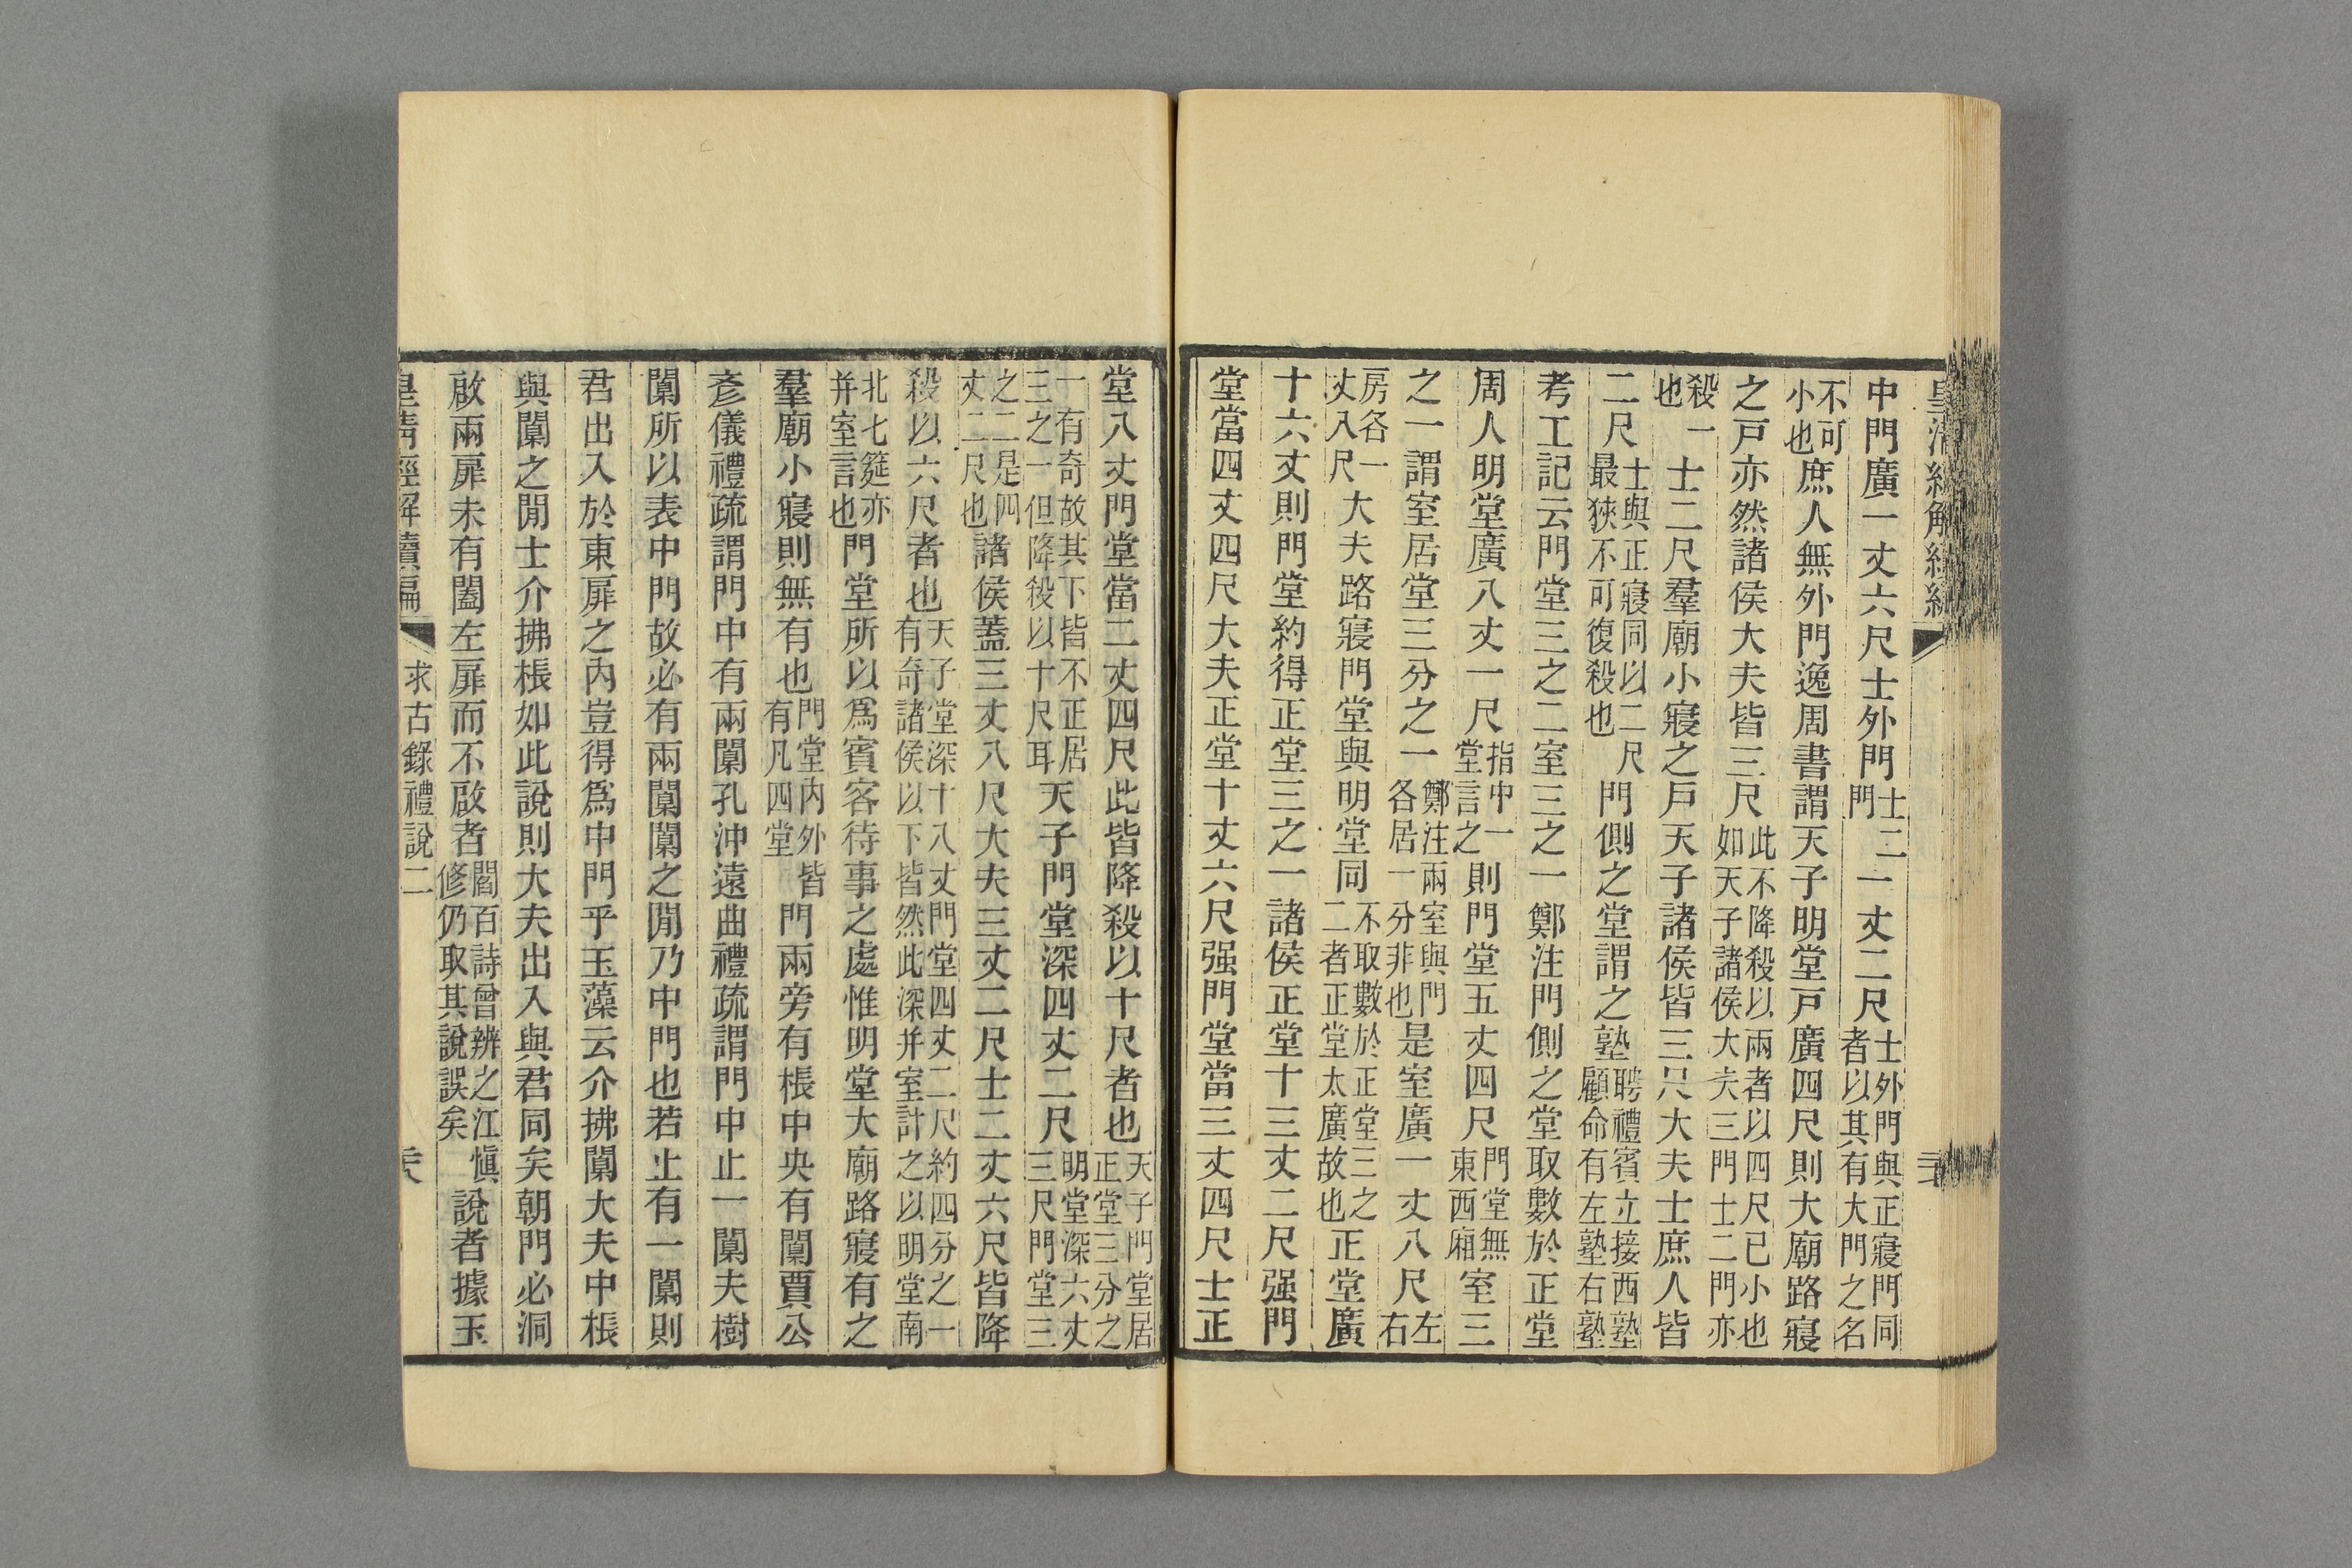 中門廣一丈六尺士外門士二門一丈二尺士外門與正寢門同者以其有大門之名
不可小也庶人無外門逸周書謂天子明堂戸廣四尺則大廟路寢
之戸亦然諸侯大夫皆三尺此不降殺以兩者以四尺已小也如天子諸侯大夫三門士二門亦
殺一也士二尺羣廟小寢之戸天子諸侯皆三尺大夫士庶人皆
二尺士與正寢同以二尺最狹不可復殺也門側之堂謂之塾聘禮賓立接西塾顧命有左塾右塾
考工記云門堂三之二室三之一鄭注門側之堂取數於正堂
周人明堂廣八丈一尺指中一堂言之則門堂五丈四尺門堂無東西廂室三
之一謂室居堂三分之一鄭注兩室與門各居一分非也是室廣一丈八尺左右
房各一丈八尺大夫路寢門堂與明堂同不取數於正堂三之二者正堂太廣故也正堂廣
十六丈則門堂約得正堂三之一諸侯正堂十三丈二尺强門
堂當四丈四尺大夫正堂十丈六尺强門堂當三丈四尺士正
堂八丈門堂當二丈四尺此皆降殺以十尺者也天子門堂居正堂三分之
一有奇故其下皆不正居三之一但降殺以十尺耳天子門堂深四丈二尺明堂深六丈三尺門堂三
之二是四丈二尺也諸侯蓋三丈八尺大夫三丈二尺士二丈六尺皆降
殺以六尺者也天子堂深十八丈門堂四丈二尺約四分之一有奇諸侯以下皆然此深并室計之以明堂南
北七筵亦并室言也門堂所以爲賓客待事之處惟明堂大廟路寢有之
羣廟小寢則無有也門堂內外皆有凡四堂門兩旁有棖中央有闑賈公
彥儀禮疏謂門中有兩闑孔沖遠曲禮疏謂門中止一闑夫樹
闑所以表中門故必有兩闑闑之閒乃中門也若止有一闑則
君出入於東扉之內豈得爲中門乎玉藻云介拂闑大夫中棖
與闑之閒士介拂棖如此說則大夫出入與君同矣朝門必洞
啟兩扉未有闔左扉而不啟者閻百詩曾辨之江愼修仍取其說誤矣說者據玉
皇清經解續編 求古錄禮說二